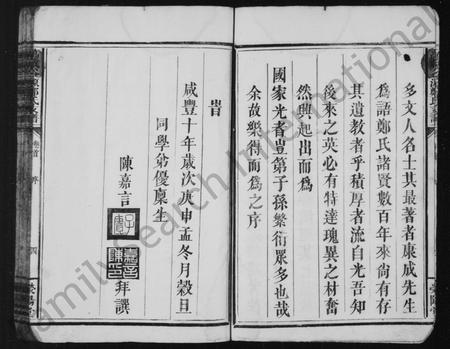 多文人名士其最著者康成先生
爲語鄭氏諸賢數百年來尙有存
其遺教者乎積厚者流自光吾知
後來之英必有特達瑰異之材奮
然興起出而爲
國家光者豈第子孫繁衍眾多也哉
余故樂得而爲之序
旹
咸豐十年歲次庚申孟冬月穀旦
同學弟優廩生
陳嘉言
拜譔
卷首
序
Family Search International